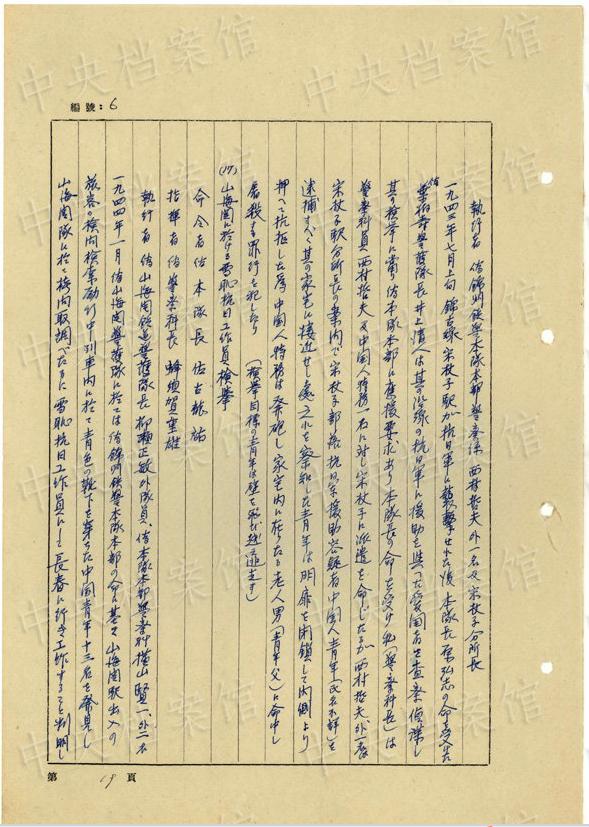 編號：6
執行者 偽錦州鉄警本隊本部警察係 西村哲夫外一名及宋杖子分所長
一九四三年七月上旬 錦古線宋杖子駅が抗日軍に襲撃せれた後 本隊長 原弘志の命を受けた
偽葉柏寿警護隊長井上清人は其の沿線の抗日軍に援助を與へた愛国者を査察偵諜し
其の検挙に當り偽本隊本部に應援要求あり 本隊長の命を受け 私（警察科長）は
警察科員西村哲夫及中国人特務一名に対し宋杖子に派遣を命じたるが西村哲夫外一名
宋杖子駅分所長の案内で宋杖子部落抗日軍援助容疑者中国人青年（氏名不詳）を
逮捕すべく其の家宅に接近せし處之れを察知した青年は明扉を閉鎖して内側より
押へて抗拒した為中国人特務は発砲し家宅内に在りたる老人男（青年父）に命中し
屠殺する罪行を犯したり （検挙目標の青年は壁を飛び越へ逃走す）
(17) 山海関に於ける雪恥抗日工作員検挙
命令者 偽本隊長 佐古龍祐
指揮者 偽警察科長 蜂須賀重雄
執行者 偽山海関鉄道警護隊長 柳瀬正敏外隊員、偽本隊本部警察科横山賢一、外一名
一九四四年一月偽山海関警護隊に於ては偽錦州鉄警本隊本部の命に基き山海関駅出入の
旅客の検問検索励行中列車内に於て青色の靴下を穿ちた中国青年十三名を発見し
山海関隊に於て検問取調べたるに雪恥抗日工作員にして長春に行き工作すること判明し
第 19 頁
中央档案馆